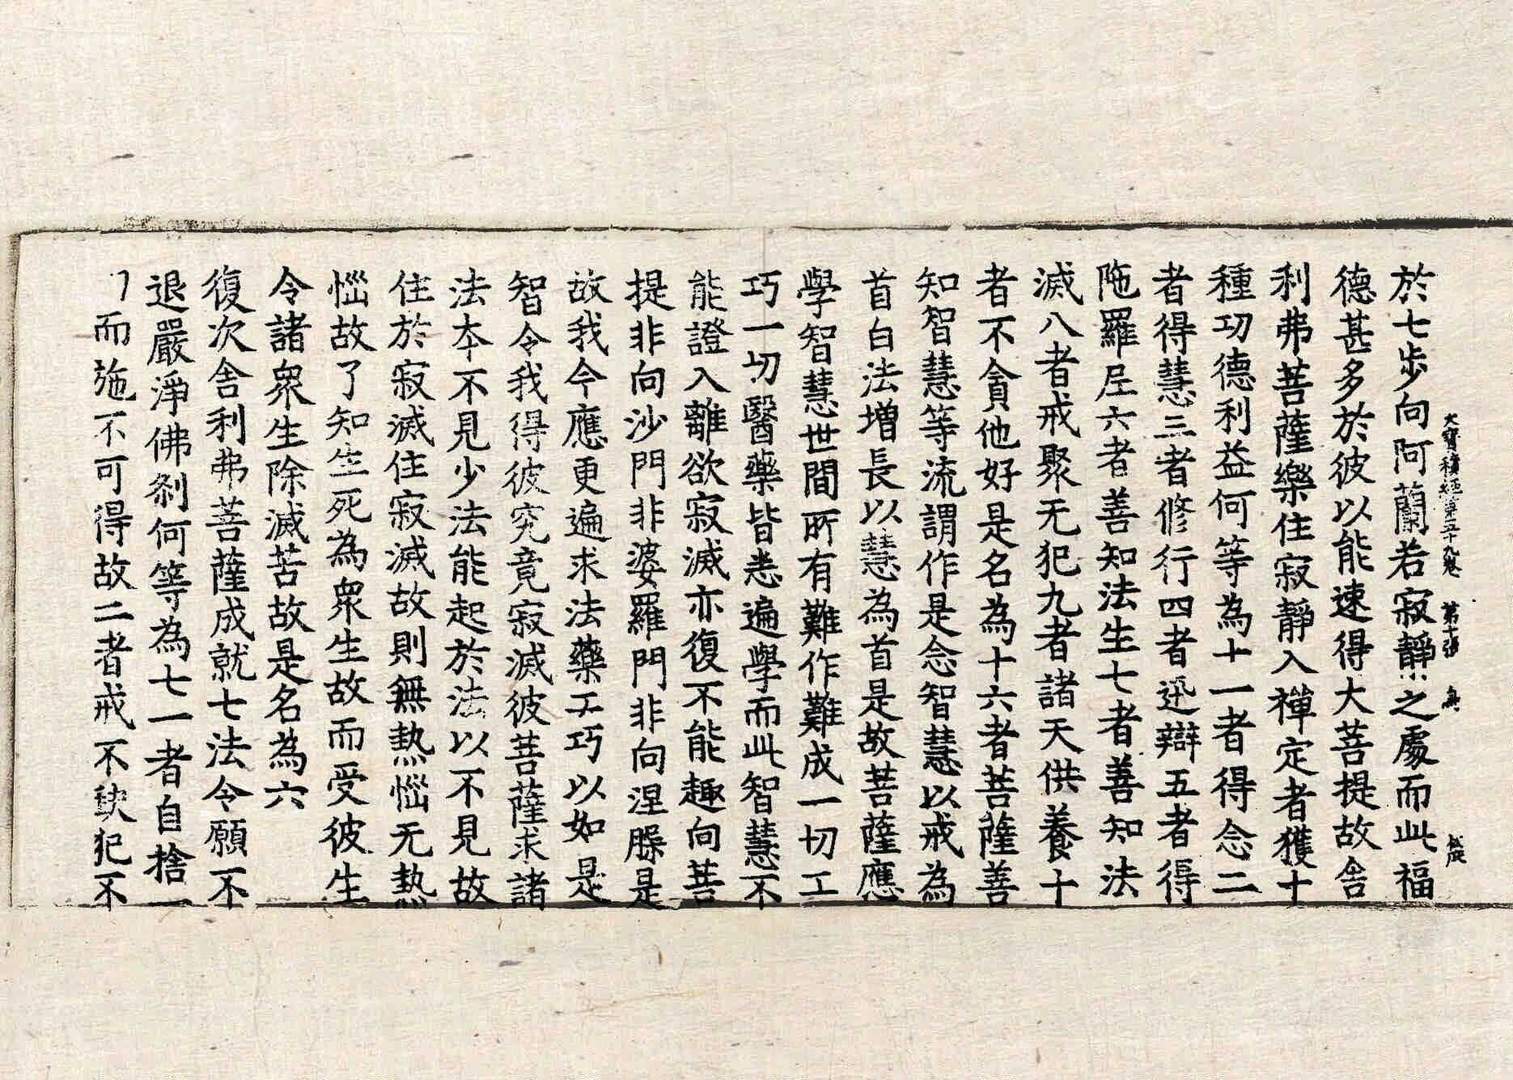 大寶積經第五十九卷 第十張 鳥
於七步向阿蘭若寂靜之處而此福
德甚多於彼以能速得大菩提故舍
利弗菩薩樂住寂靜入禪定者獲十
種功德利益何等為十一者得念二
者得慧三者修行四者迅辯五者得
陁羅尼六者善知法生七者善知法
滅八者戒聚无犯九者諸天供養十
者不貪他好是名為十六者菩薩善
知智慧等流謂作是念智慧以戒為
首白法增長以慧為首是故菩薩應
學智慧世間所有難作難成一切工
巧一切醫藥皆悉遍學而此智慧不
能證入離欲寂滅亦復不能趣向菩
提非向沙門非婆羅門非向涅槃是
故我今應更遍求法藥工巧以如是
智令我得彼究竟寂滅彼菩薩求諸
法本不見少法能起於法以不見故
住於寂滅住寂滅故則無熱惱无熱
惱故了知生死為衆生故而受彼生
令諸衆生除滅苦故是名為六
復次舍利弗菩薩成就七法令願不
退嚴淨佛剎何等為七一者自捨一
切而施不可得故二者戒不缺犯不